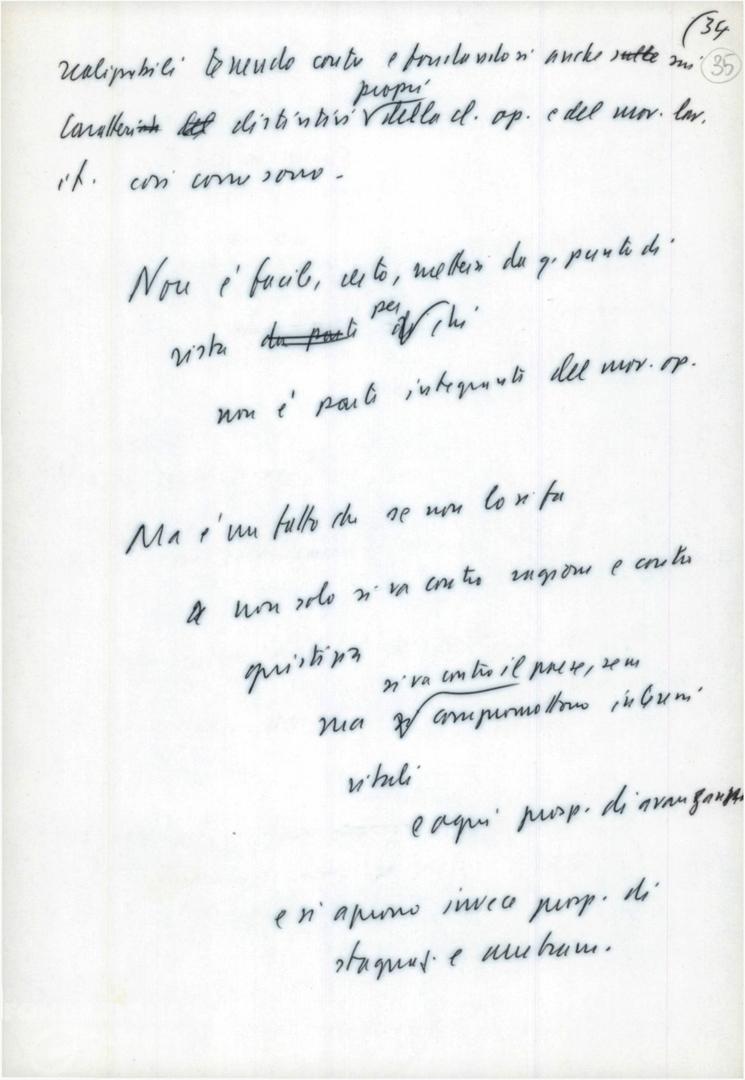 (34
35
realizzabili tenendo conto e fondandosi anche ~~sulle~~ sui
propri
caratteri ~~del~~ distintivi della cl. op. e del mov. lav.
it. così come sono.
Non è facile, certo, mettersi da q. punto di
per
vista ~~da parte~~ chi
non è parte integrante del mov. op.
Ma è un fatto che se non lo si fa
non solo si va contro ragione e contro
giustizia
si va contro il paese, se ne
ma compromettono interessi
vitali
e ogni prosp. di avanzam.
e si aprono invece prosp. di
stagnaz. e arretram.